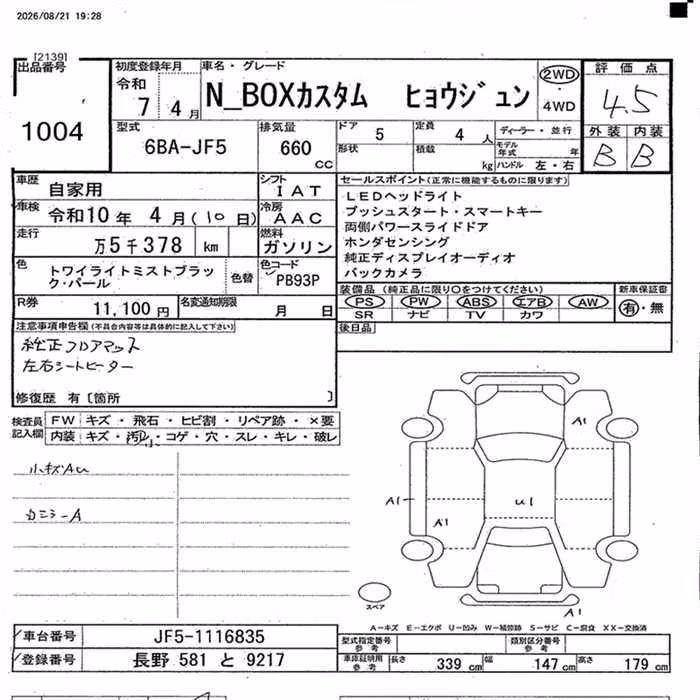 2026/08/21 19:28
[2139]
出品番号
1004
初度登録年月
令和
7 4月
車名・グレード
N_BOXカスタム ヒョウジュン
2WD
4WD
評価点
4.5
外装 内装
B B
型式
6BA-JF5
排気量
660 cc
ドア 5
形状
定員 4 人
積載 kg
ディーラー・並行
モデル年式 年
ハンドル 左・右
車歴
自家用
シフト
IAT
車検
令和10年 4月(10日)
冷房
AAC
走行
万5千378 km
燃料
ガソリン
色
トワイライトミストブラック・パール
色替
色コード
PB93P
R券
11,100円
名変通知期限
月 日
セールスポイント(正常に機能するものに限ります)
LEDヘッドライト
プッシュスタート・スマートキー
両側パワースライドドア
ホンダセンシング
純正ディスプレイオーディオ
バックカメラ
装備品(純正品に限り○をつけてください)
PS PW ABS エアB AW
SR ナビ TV カワ
新車保証書
有・無
後日品
注意事項申告欄(不具合内容等は具体的に記入して下さい)
純正フロアマット
左右シートヒーター
修復歴 有〔箇所 〕
検査員記入欄
FW キズ・飛石・ヒビ割・リペア跡・×要
内装 キズ・汚れ小・コゲ・穴・スレ・キレ・破レ
小キズAU
カニラーA
A1
A1
A1
U1
A1
スペア
A-キズ E-エクボ U-凹み W-補修跡 S-サビ C-腐食 XX-交換済
車台番号
JF5-1116835
登録番号
長野 581 と 9217
型式指定番号 参考
類別区分番号 参考
車庫証明用 参考
長さ 339 cm 幅 147 cm 高さ 179 cm